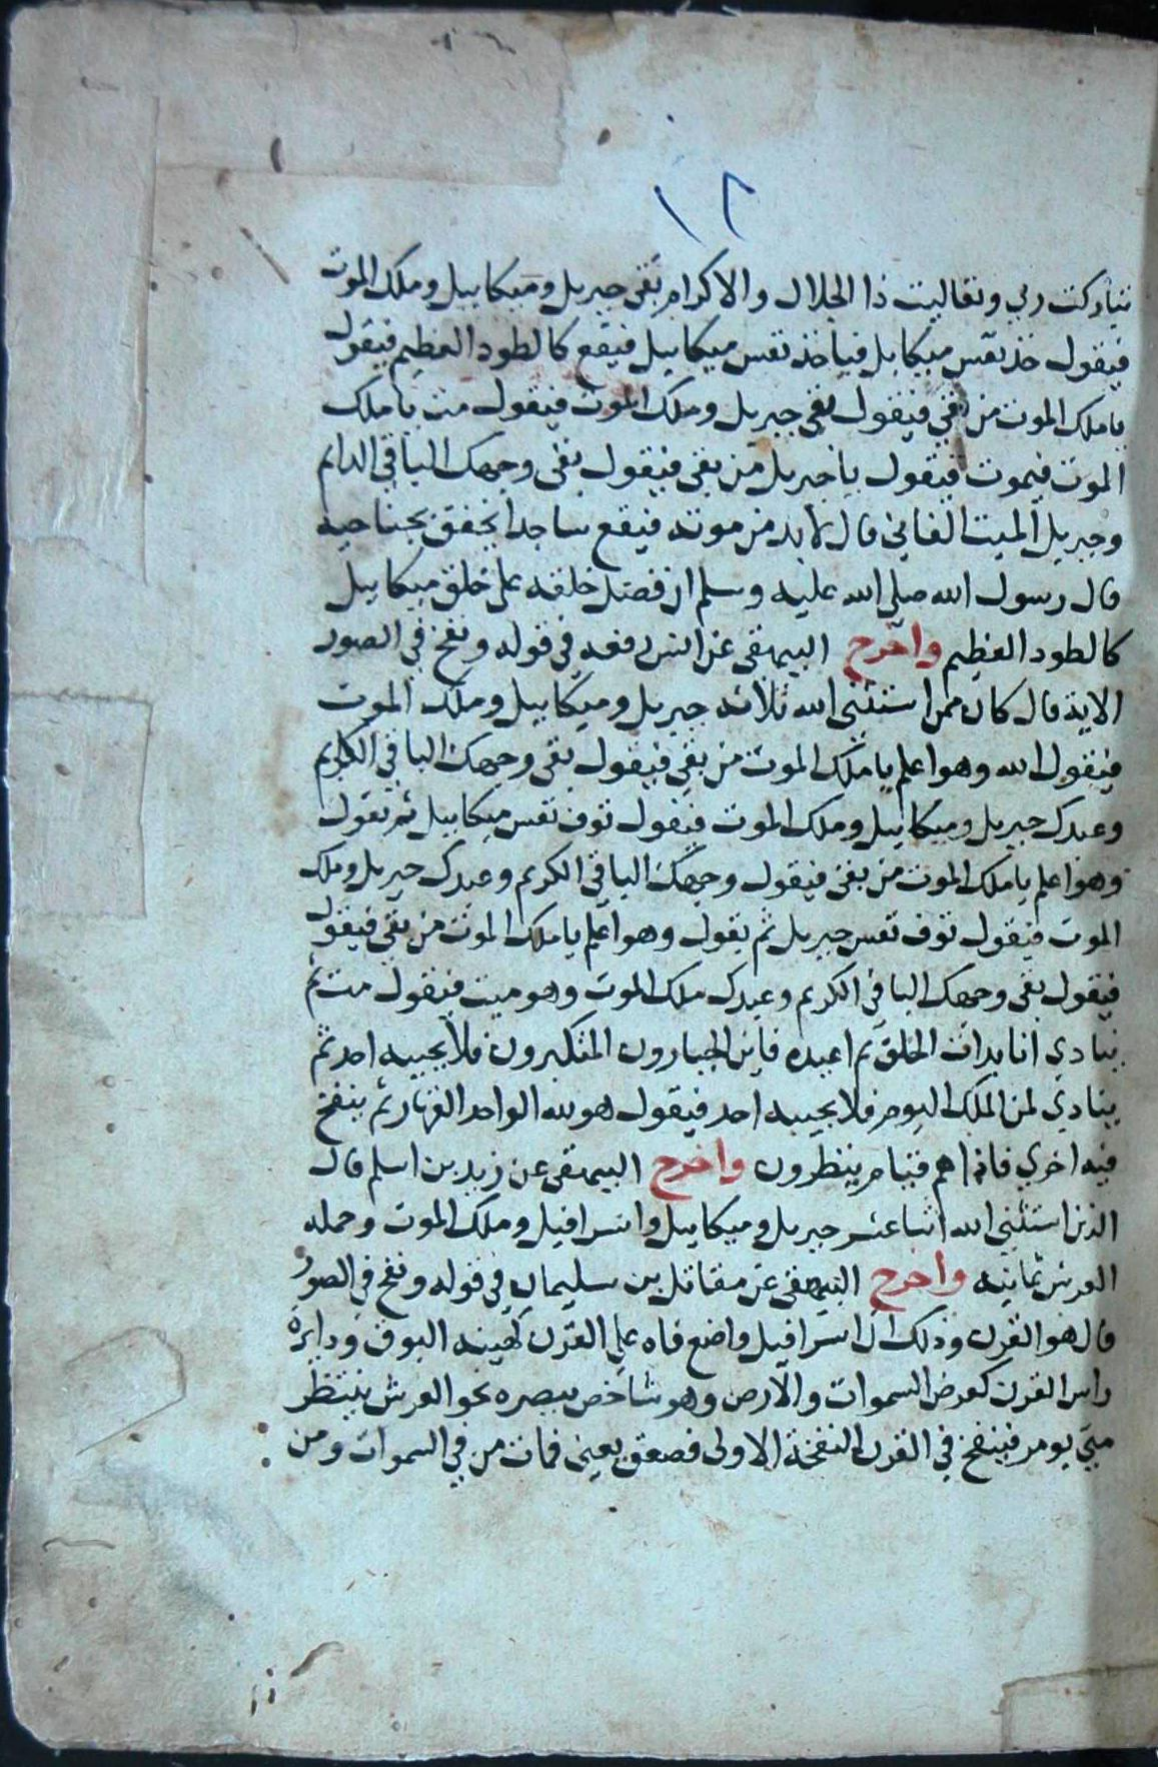 ١٢
تباركت ربي وتعاليت ذا الجلال والاكرام بقي جبريل وميكاييل وملك الموت
فيقول خذ نفس ميكايل فياخذ نفس ميكاييل فيقع كالطود العظيم فيقول
ياملك الموت من بقي فيقول بقي جبريل وملك الموت فيقول مت ياملك
الموت فيموت فيقول ياجبريل من بقي فيقول بقي وجهك الباقي الدايم
وجبريل الميت الفاني قال لابد من موته فيقع ساجدا يخفق بجناحيه
قال رسول الله صلى الله عليه وسلم ان فضل خلقه على خلق ميكاييل
كالطود العظيم واخرج البيهقي عن انس رفعه في قوله ونفخ في الصور
الاية قال كان ممن استثنى الله ثلاثه جبريل وميكاييل وملك الموت
فيقول الله وهو اعلم ياملك الموت من بقي فيقول بقي وجهك الباقي الكريم
وعبدك جبريل وميكاييل وملك الموت فيقول توف نفس ميكاييل ثم يقول
وهو اعلم ياملك الموت من بقي فيقول وجهك الباقي الكريم وعبدك جبريل وملك
الموت فيقول توف نفس جبريل ثم يقول وهو اعلم ياملك الموت من بقي فيقول
فيقول بقي وجهك الباقي الكريم وعبدك ملك الموت وهو ميت فيقول مت ثم
ينادي انا بدات الخلق ثم اعيده فاين الجبارون المتكبرون فلا يجيبه احد ثم
ينادي لمن الملك اليوم فلا يجيبه احد فيقول هو لله الواحد القهار ثم ينفخ
فيه اخري فاذا هم قيام ينظرون واخرج البيهقي عن زيد بن اسلم قال
الذين استثنى الله اثنا عشر جبريل وميكاييل واسرافيل وملك الموت وحمله
العرش ثمانيه واخرج البيهقي عن مقاتل بن سليمان في قوله ونفخ في الصور
قال هو القرن وذلك ان اسرافيل واضع فاه على القرن كهيئه البوق ودايرة
راس القرن كعرض السموات والارض وهو شاخص ببصره نحو العرش ينتظر
متي يومر فينفخ في القرن النفخة الاولى فصعق يعني فمات من في السموات ومن